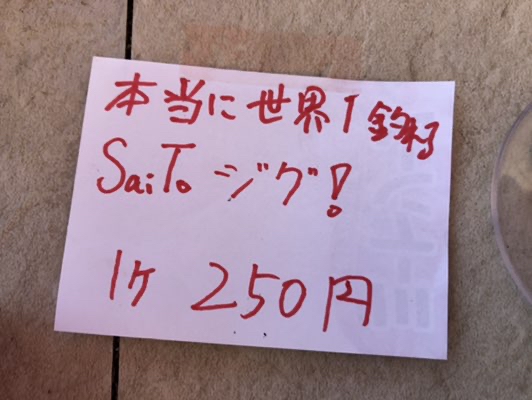 本当に世界1釣れる
SaiTo ジグ!
1ケ 250円